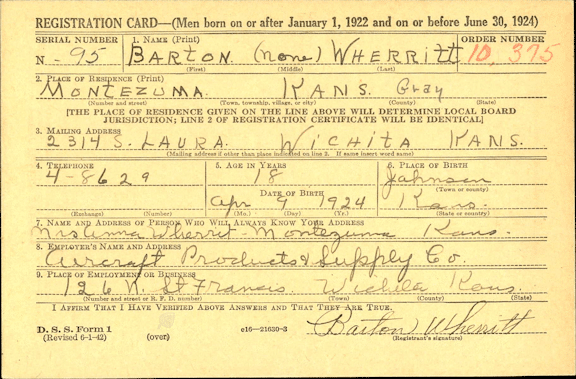 REGISTRATION CARD—(Men born on or after January 1, 1922 and on or before June 30, 1924)
SERIAL NUMBER 1. NAME (Print) ORDER NUMBER
N - 95 BARTON (none) WHERRITT 10,395
(First) (Middle) (Last)
2. PLACE OF RESIDENCE (Print)
MONTEZUMA KANS. Gray
(Number and street) (Town, township, village, or city) (County) (State)
[THE PLACE OF RESIDENCE GIVEN ON THE LINE ABOVE WILL DETERMINE LOCAL BOARD
JURISDICTION; LINE 2 OF REGISTRATION CERTIFICATE WILL BE IDENTICAL]
3. MAILING ADDRESS
2314 S. LAURA. WICHITA KANS.
(Mailing address if other than place indicated on line 2. If same insert word same)
4. TELEPHONE 5. AGE IN YEARS 6. PLACE OF BIRTH
4-8629 18 Johnson
DATE OF BIRTH (Town or county)
Apr 9 1924 Kans.
(Exchange) (Number) (Mo.) (Day) (Yr.) (State or country)
7. NAME AND ADDRESS OF PERSON WHO WILL ALWAYS KNOW YOUR ADDRESS
Mrs Anna Wherritt - Montezuma Kans.
8. EMPLOYER'S NAME AND ADDRESS
Aircraft Products & Supply Co.
9. PLACE OF EMPLOYMENT OR BUSINESS
126 N. St Francis. Wichita Kans.
(Number and street or R. F. D. number) (Town) (County) (State)
I AFFIRM THAT I HAVE VERIFIED ABOVE ANSWERS AND THAT THEY ARE TRUE.
D. S. S. Form 1
(Revised 6-1-42) (over) c16—21630-3 Barton Wherritt
(Registrant's signature)